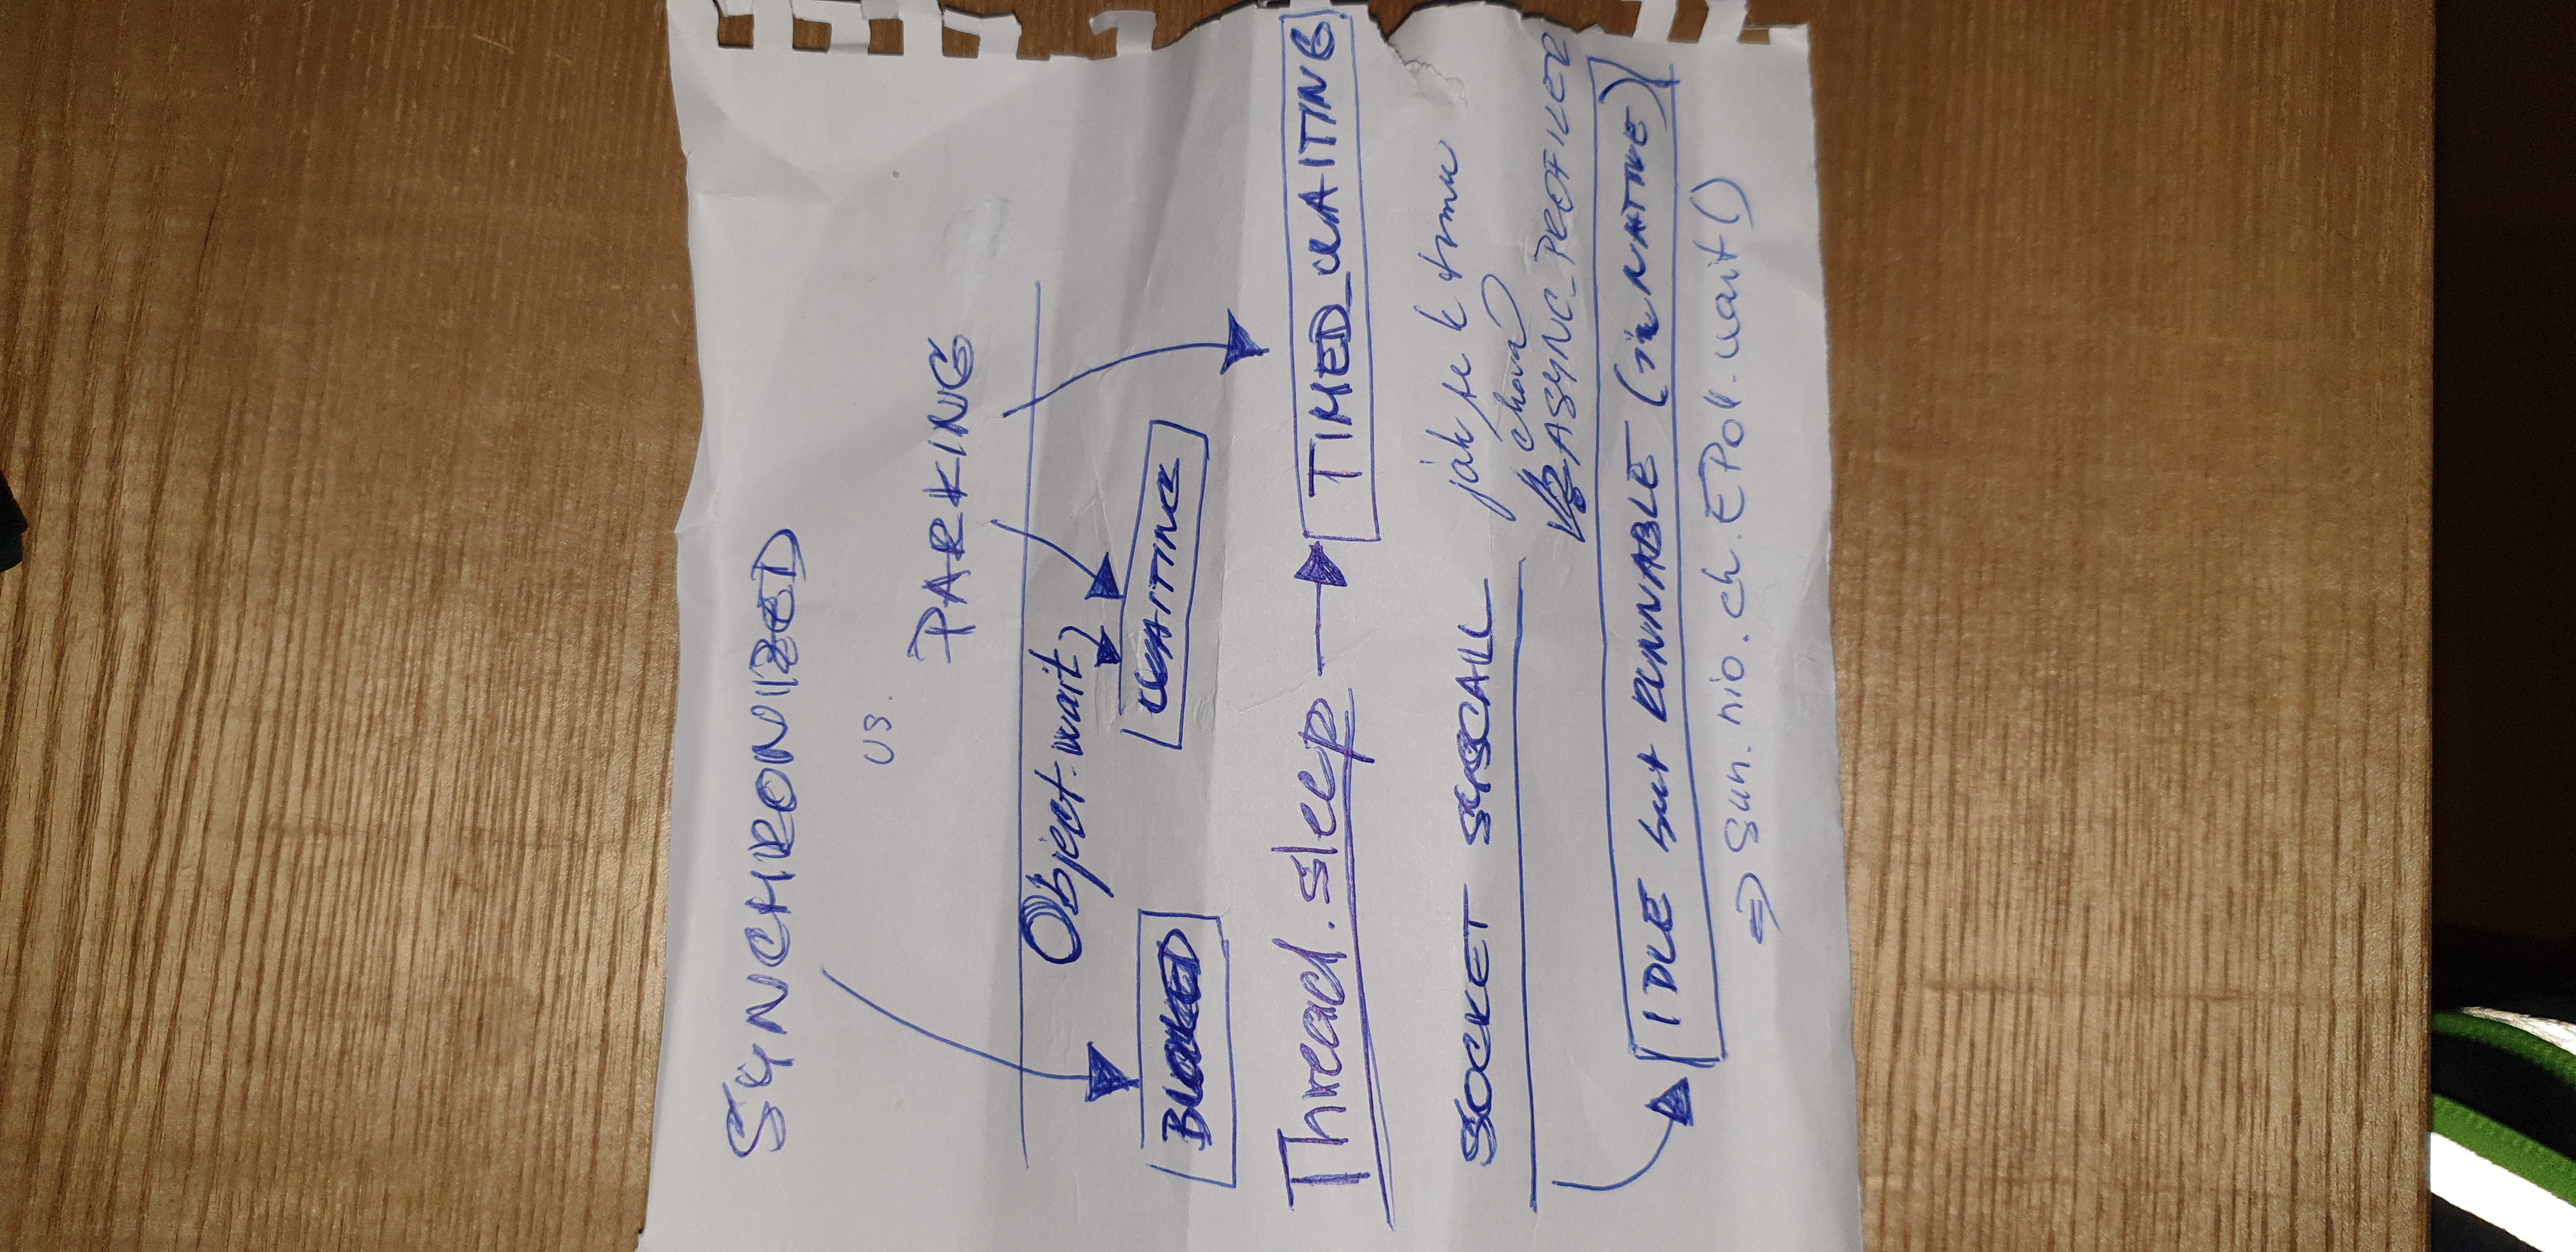 SYNCHRONIZED
vs.
PARKING
Object.wait
BLOCKED
WAITING
Thread.sleep
TIMED_WAITING
SOCKET SYSCALL
jak se k tomu
chová
ASYNC_PROFILER
IDLE but RUNNABLE (in NATIVE)
=> sun.nio.ch.EPoll.wait()